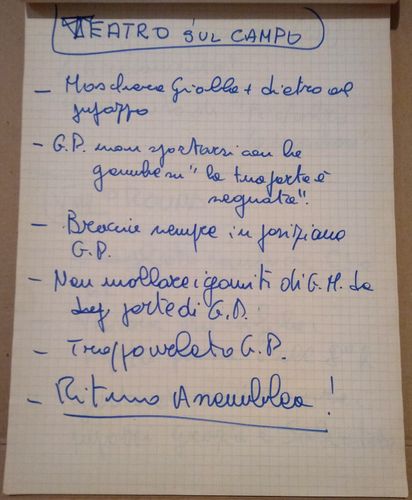 TEATRO SUL CAMPO
- Maschera Gialla + dietro al
- G.P. non spostarsi con le
gambe su "la tua sorte è
segnata".
- Braccia sempre in posizione
G.P.
- Non mollare i gomiti di G.M. da
parte di G.P.
- Troppo urlato G.P.
- Ritmo Assemblea!